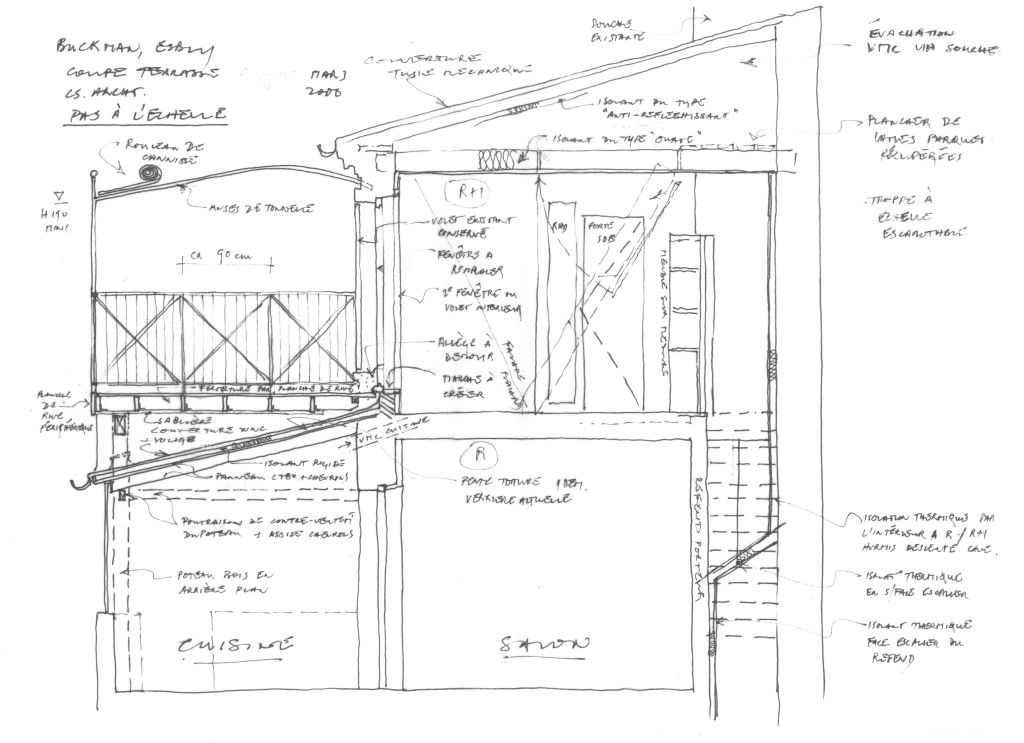 BUCKMAN, ESBLY
COUPE TERRASSE
MARS
CS. ARCHT.
2006
PAS À L'ECHELLE
COUVERTURE
TUILE MECANIQUE
SOUCHE
EXISTANTE
ÉVACUATION
VMC VIA SOUCHE
ISOLANT DU TYPE
"ANTI-REFLECHISSANT"
ISOLANT DU TYPE "OUATE"
PLANCHER DE
LAMES PARQUET
RÉCUPÉRÉES
TRAPPE À
ÉCHELLE
ESCAMOTABLE
ROULEAU DE
CANNISSE
H 190
MINI
MISES DE TONNELLE
ca 90 cm
R+1
VOLET EXISTANT
CONSERVÉ
FENÊTRE A
REMPLACER
2e FENÊTRE OU
VOLET INTERIEUR
ALLÈGE A
DEMOLIR
MARCHES À
CRÉER
RAD
PORTE
SDB
MEUBLE SUR MESURE
FAÇADE
PLACARD
FERMETURE PAR PLANCHE DE RIVE
PLANCHE
DE
RIVE
PÉRIPHÉRIQUE
SABLIÈRE
COUVERTURE ZINC
+ VOLIGE
VMC CUISINE
ISOLANT RIGIDE
PANNEAU CTBX + CHEVRONS
R
PENTE TOITURE IDEM.
VERRIERE ACTUELLE
POUTRAISON DE CONTRE-VENTEMT
DU POTEAU + ASSISE CHEVRONS
POTEAU BOIS EN
ARRIÈRE PLAN
REFEND PORTEUR
ISOLATION THERMIQUE PAR
L'INTÉRIEUR A R / R+1
HORMIS DESCENTE CAVE.
ISOLAT° THERMIQUE
EN S/FACE ESCALIER
ISOLANT THERMIQUE
FACE ESCALIER DU
REFEND
CUISINE
SALON